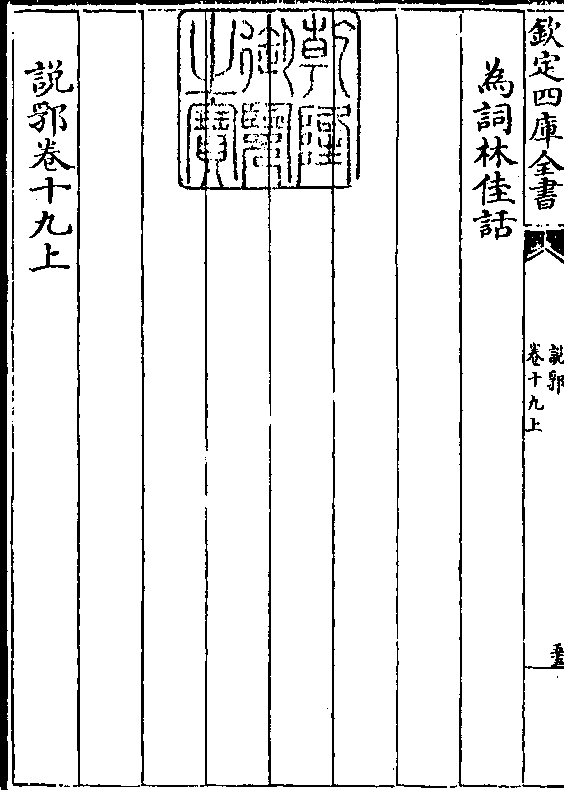 欽定四庫全書
說郛
卷十九上
為詞林佳話
乾隆
御覽
之寶
說郛卷十九上